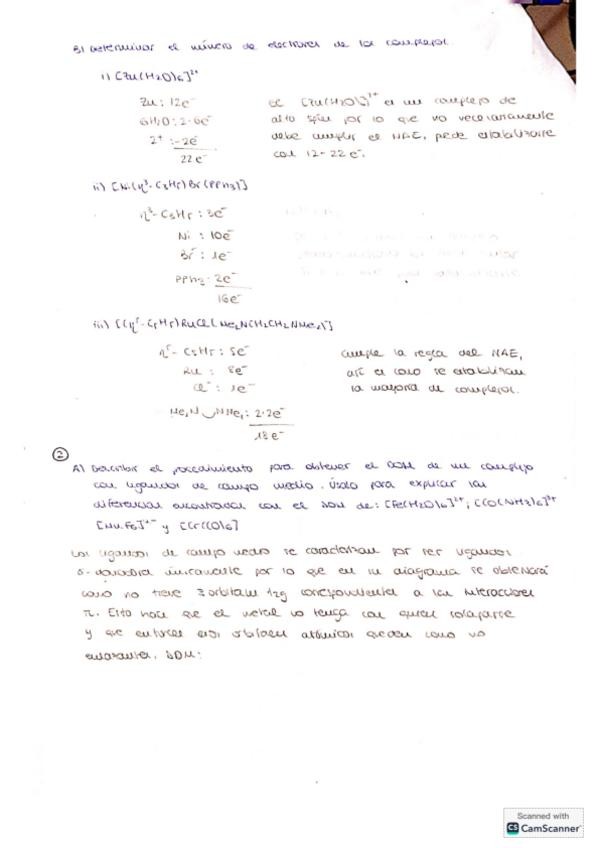 B) Determinar el número de electrones de los complejos.
i) [Zn(H2O)6]2+
Zn: 12e-
6H2O: 2·6e-
2+: -2e-
22e-
El [Zn(H2O)6]2+ es un complejo de
alto spin por lo que no necesariamente
debe cumplir el NAE, puede estabilizarse
con 12-22 e-.
ii) [Ni(η3-C3H5)Br(PPh3)]
η3-C3H5: 3e-
Ni: 10e-
Br-: 1e-
PPh3: 2e-
16e-
iii) [(η5-C5H5)RuCl(Me2NCH2CH2NMe2)]
η5-C5H5: 5e-
Ru: 8e-
Cl-: 1e-
Me2N NMe2: 2·2e-
18e-
Cumple la regla del NAE,
así es como se estabilizan
la mayoría de complejos.
2
A) Describir el procedimiento para obtener el DOM de un complejo
con ligandos de campo medio. Úsalo para explicar las
diferencias encontradas con el DOM de: [Fe(H2O)6]2+; [Co(NH3)6]3+
[MnF6]4- y [Cr(CO)6]
Los ligandos de campo medio se caracterizan por ser ligandos
σ-dadores únicamente por lo que en su diagrama se observará
como no tiene 3 orbitales t2g correspondientes a las interacciones
π. Esto hace que el metal no tenga con quien solaparse
y que entonces esos orbitales atómicos queden como no
enlazantes. DOM:
Scanned with
CS CamScanner